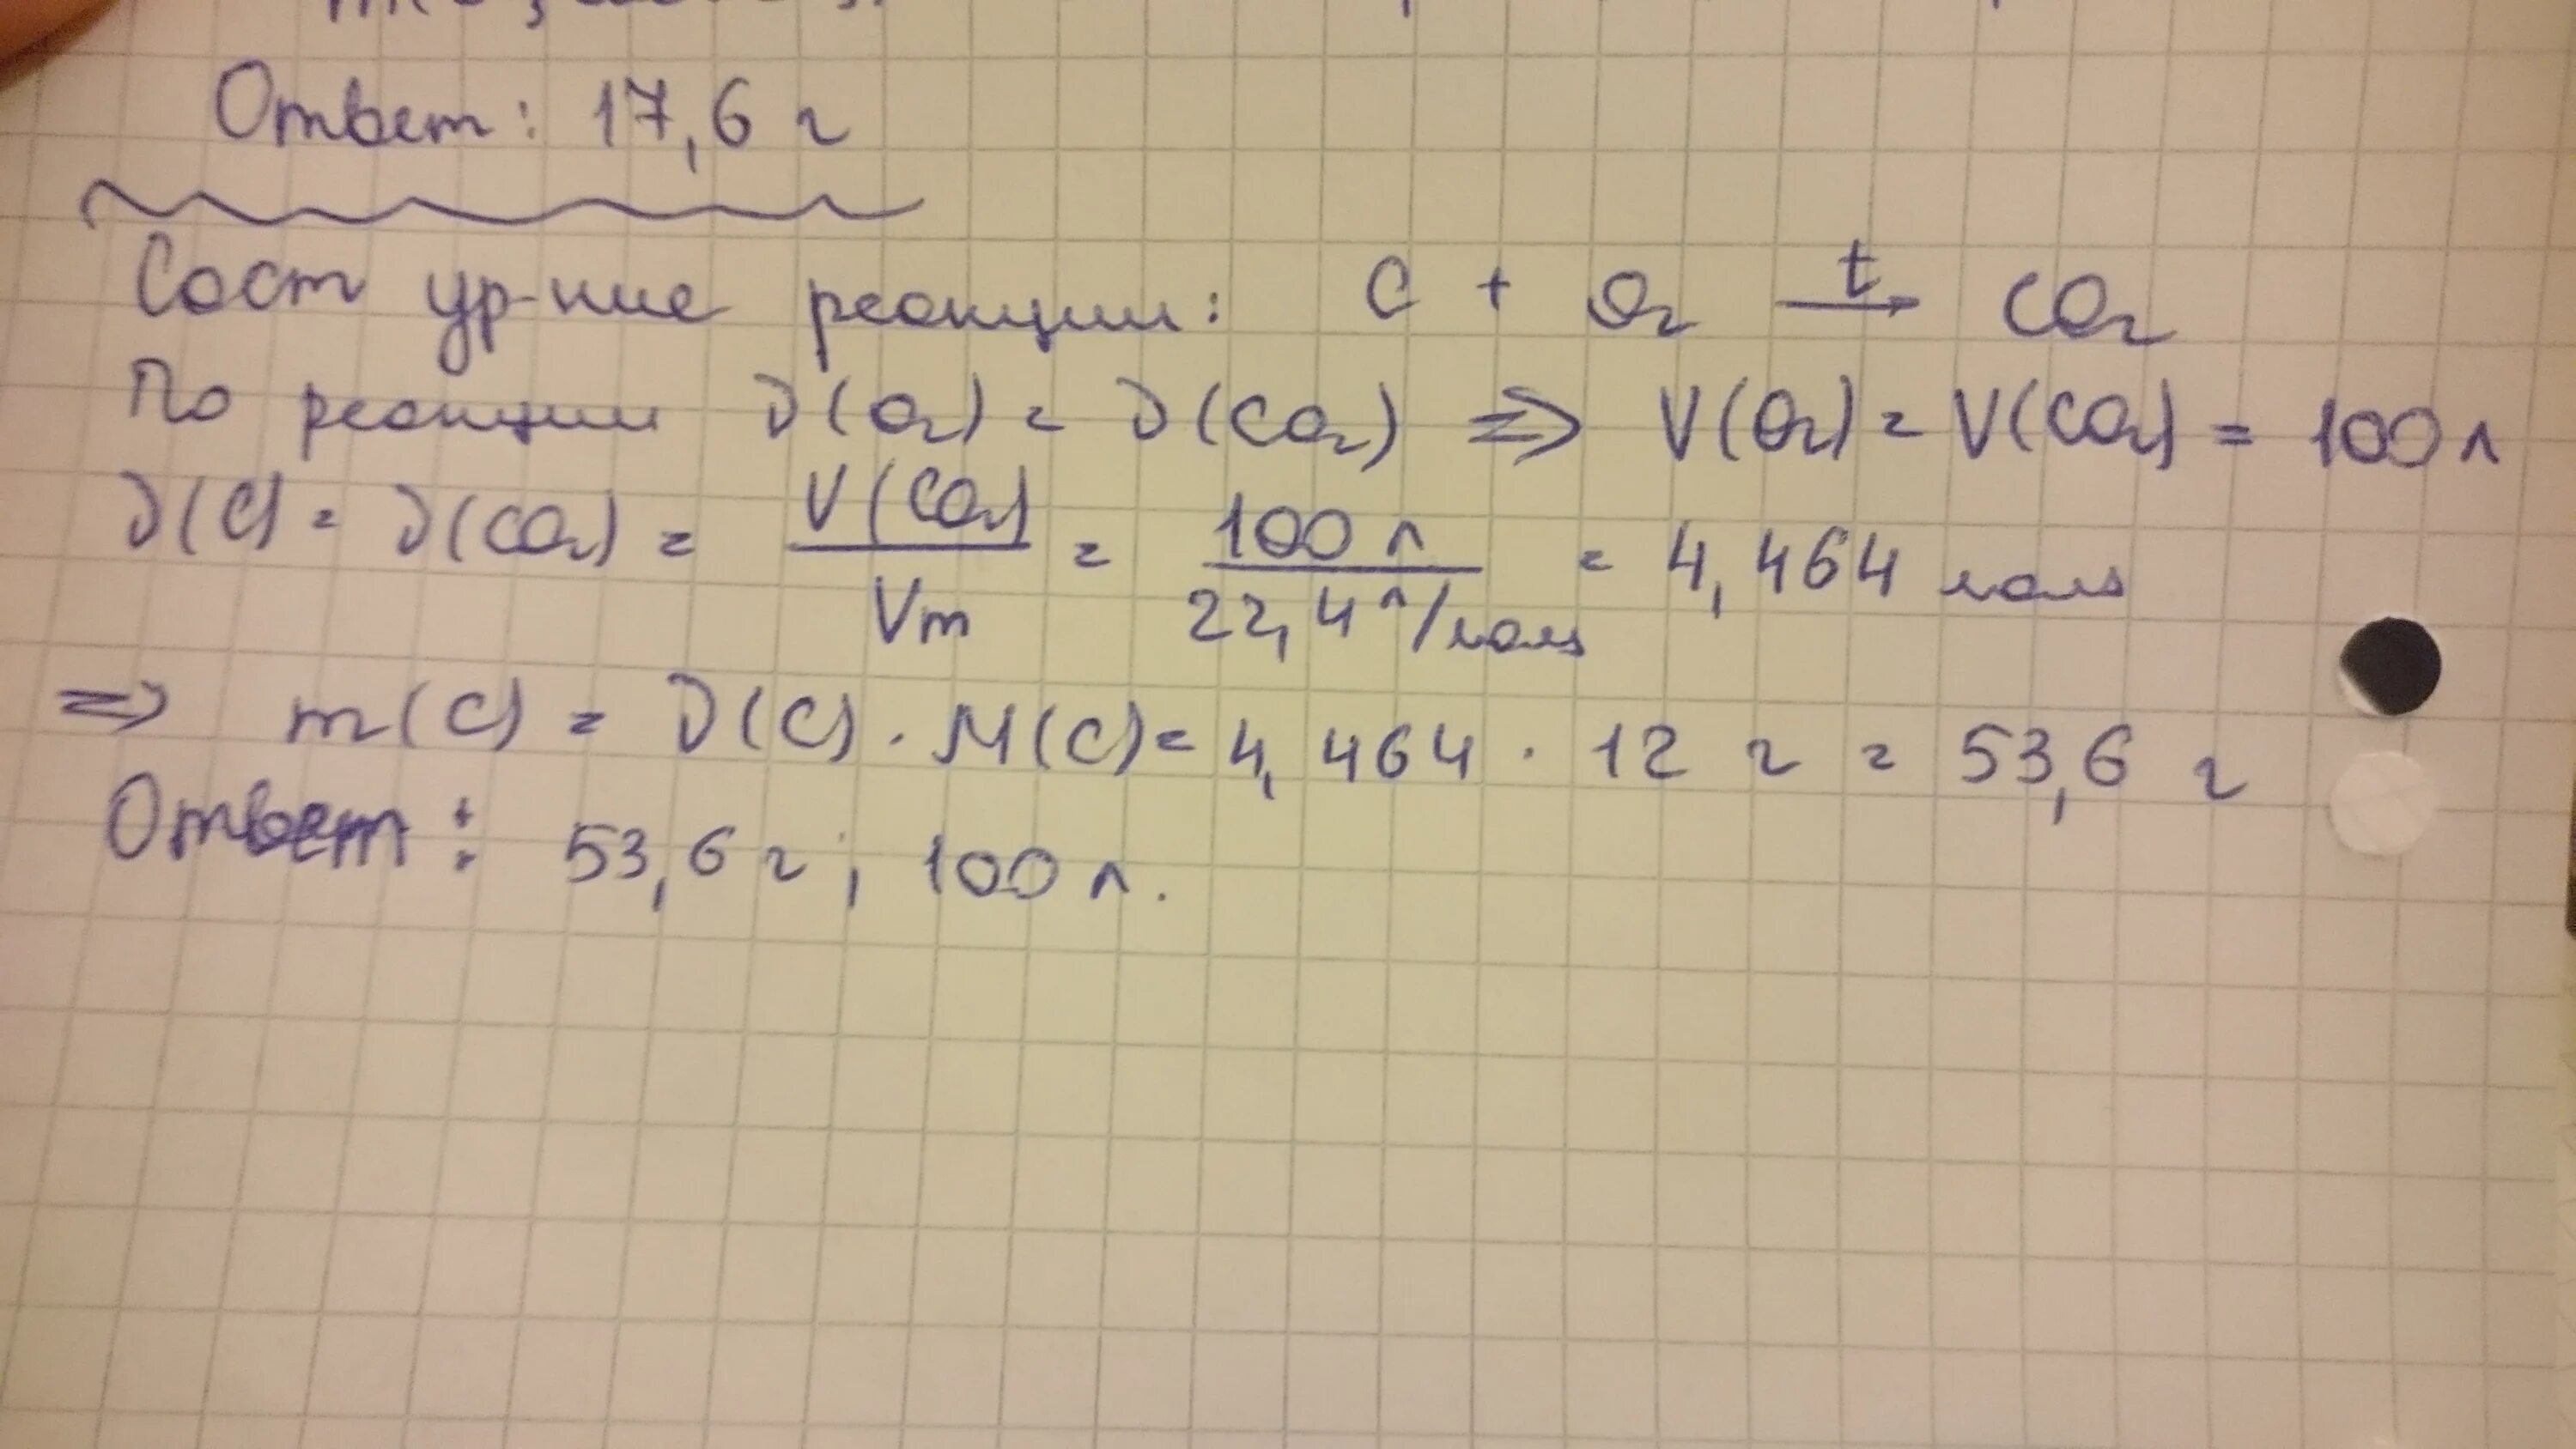 Ответ: 17,6 г
Сост ур-ние реакции: C + O₂ →t CO₂
По реакции ν(O₂) = ν(CO₂) ⇒ V(O₂) = V(CO₂) = 100 л
ν(C) = ν(CO₂) = V(CO₂)/Vm = 100 л/22,4 л/моль = 4,464 моль
⇒ m(C) = ν(C) · M(C) = 4,464 · 12 г = 53,6 г
Ответ: 53,6 г; 100 л.